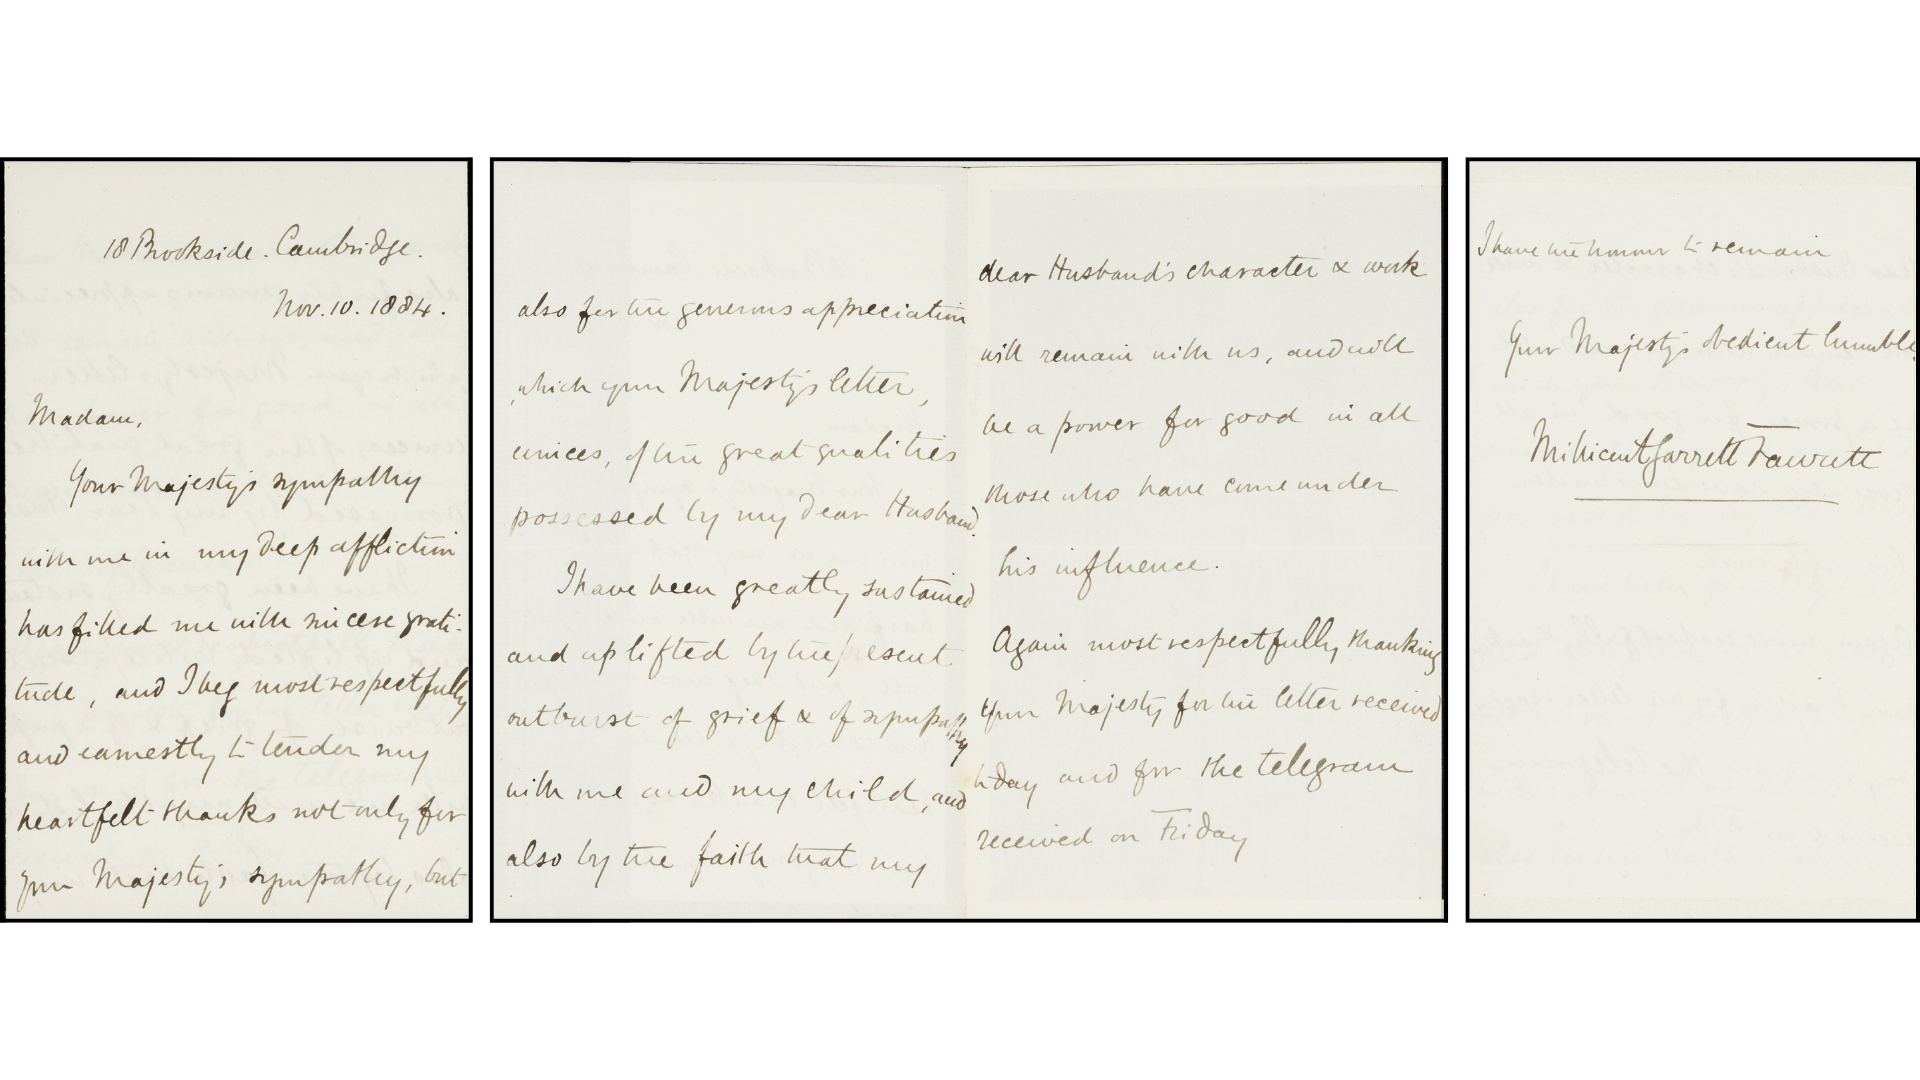 18 Brookside. Cambridge.
Nov. 10. 1884.
Madam,
Your Majesty's sympathy
with me in my deep affliction
has filled me with sincere grati-
tude, and I beg most respectfully
and earnestly to tender my
heartfelt thanks not only for
your Majesty's sympathy, but
also for the generous appreciation
which your Majesty's letter,
evinces, of the great qualities
possessed by my dear Husband.
I have been greatly sustained
and uplifted by the present
outburst of grief & of sympathy
with me and my child, and
also by the faith that my
dear Husband's character & work
will remain with us, and will
be a power for good in all
those who have come under
his influence.
Again most respectfully thanking
Your Majesty for the letter received
today and for the telegram
received on Friday
I have the honour to remain
Your Majesty's obedient humble
Millicent Garrett Fawcett